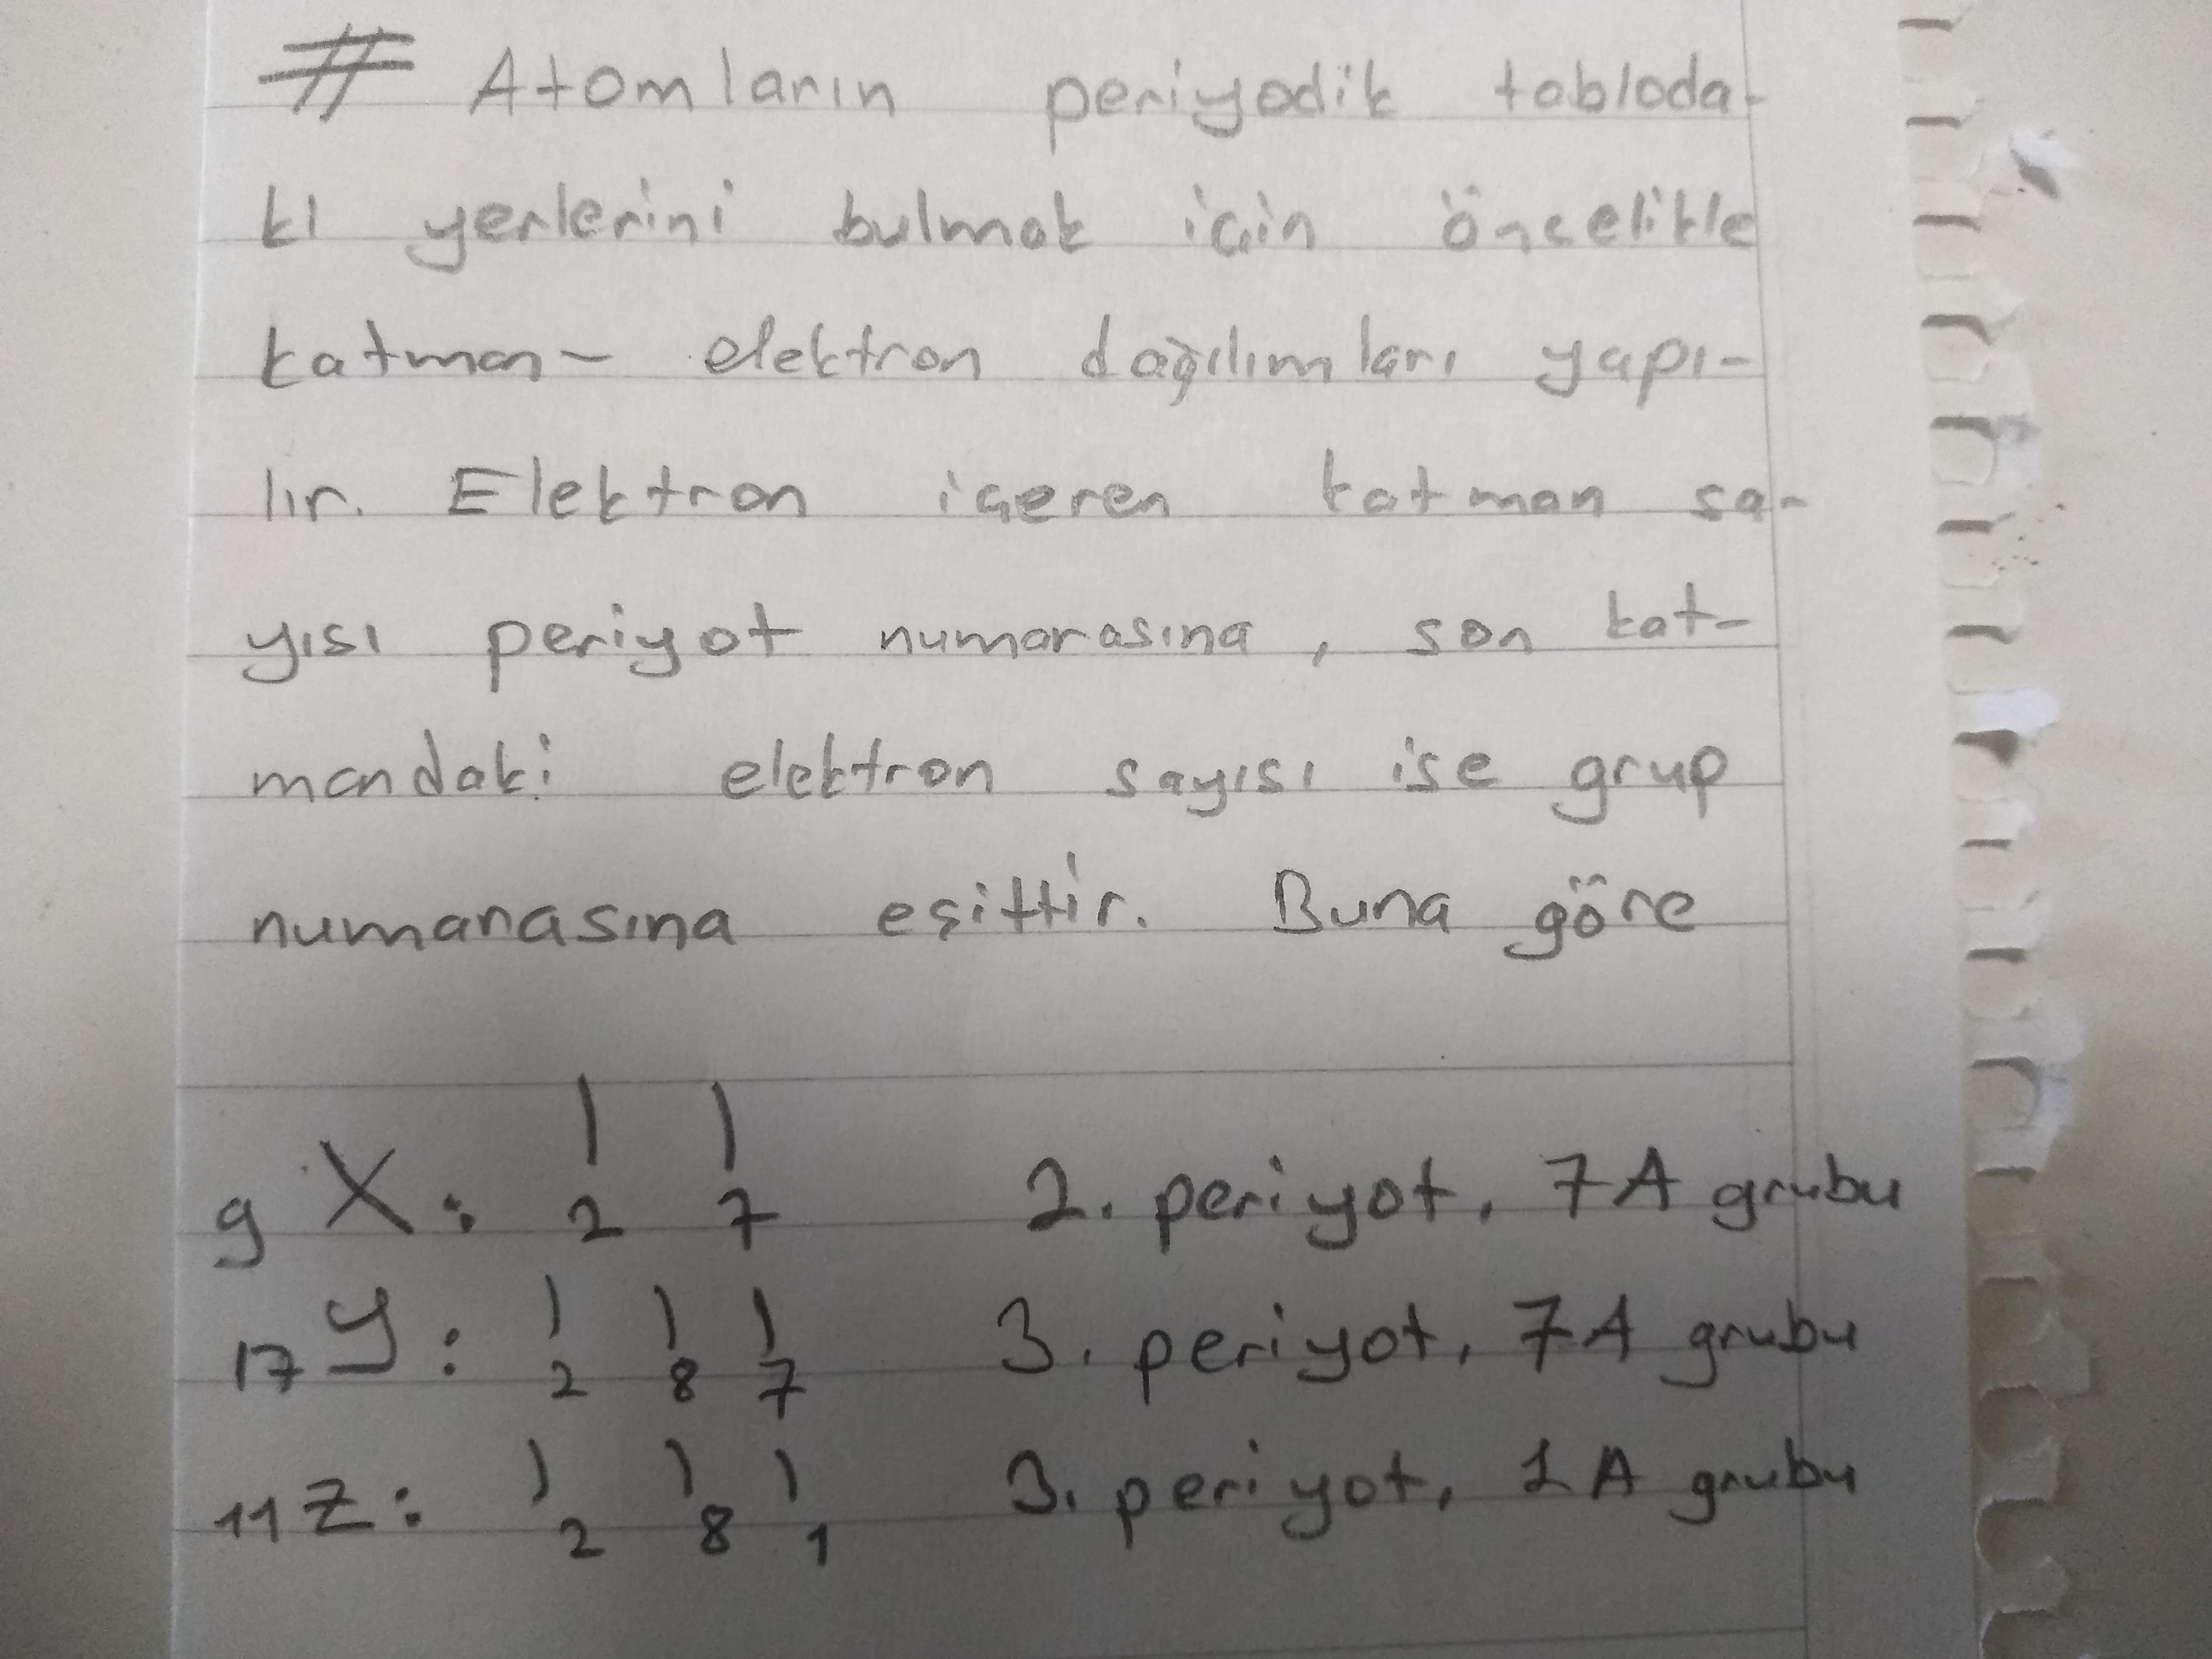 # Atomların periyodik tabloda-
ki yerlerini bulmak için öncelikle
katman- elektron dağılımları yapı-
lır. Elektron içeren katman sa-
yısı periyot numarasına, son kat-
mandaki elektron sayısı ise grup
numarasına eşittir. Buna göre
9 X: 2 7 2. periyot, 7A grubu
17 Y: 2 8 7 3. periyot, 7A grubu
11 Z: 2 8 1 3. periyot, 1A grubu